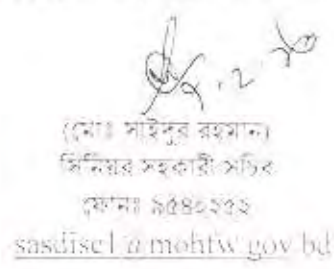 (মোঃ সাইদুর রহমান)
সিনিয়র সহকারী সচিব
ফোনঃ ৯৫৪০২৫২
sasdisc1@mohfw.gov.bd